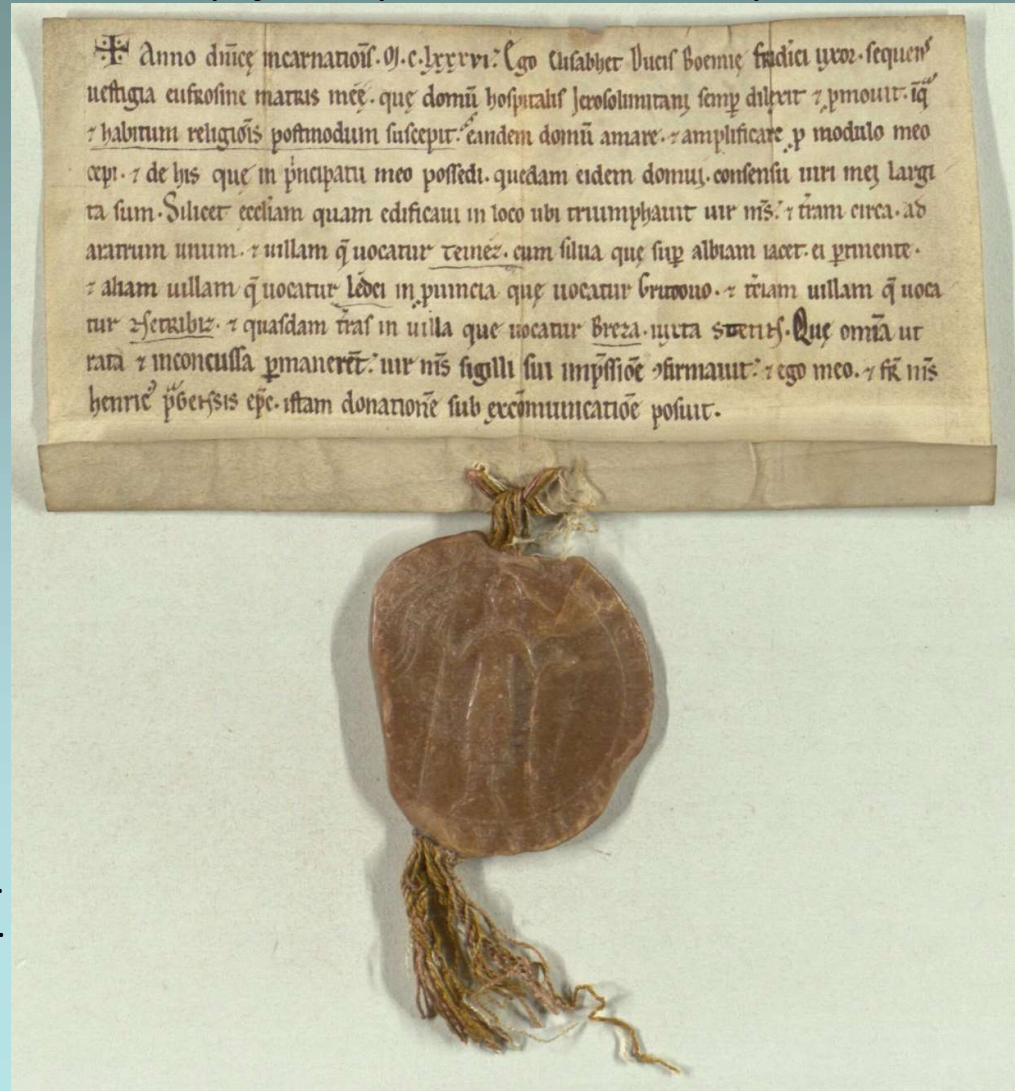 ✠ Anno dn̄icę incarnationis̄. M. c. lxxxvi. Ego Elisabhet Ducis Boemię fridici uxor. sequens
uestigia eufrosine matris męę. quę domū hospitalis Ierosolimitani semꝑ dilexit ⁊ ꝓmouit. iq̄
⁊ habitum religiōis postmodum suscepit. eandem domū amare. ⁊ amplificare ꝓ modulo meo
cepi. ⁊ de his quę in pͥncipatu meo possedi. quedam eidem domui. consensu uiri mei largi
ta sum. Silicet eccl̄iam quam edificaui in loco ubi triumphauit uir ms̄. ⁊ tr̄am circa. ad
aratrum unum. ⁊ uillam q̄ uocatur teinez. cum silua quę suꝑ albiam iacet. ei ꝑtinente.
⁊ aliam uillam q̄ uocatur ledci in ꝓuincia quę uocatur ⁊ tr̄iam uillam q̄ uoca
tur ⁊ quasdam tr̄as in uilla que uocatur Breza. iuxta Quę omīa ut
rata ⁊ inconcussa ꝑmanerēt. uir ms̄ sigilli sui imp̄ssiōe ꝯfirmauit. ⁊ ego meo. ⁊ fr̄ ms̄
henricꝰ epc̄. istam donationē sub excōmunicatiōe posuit.